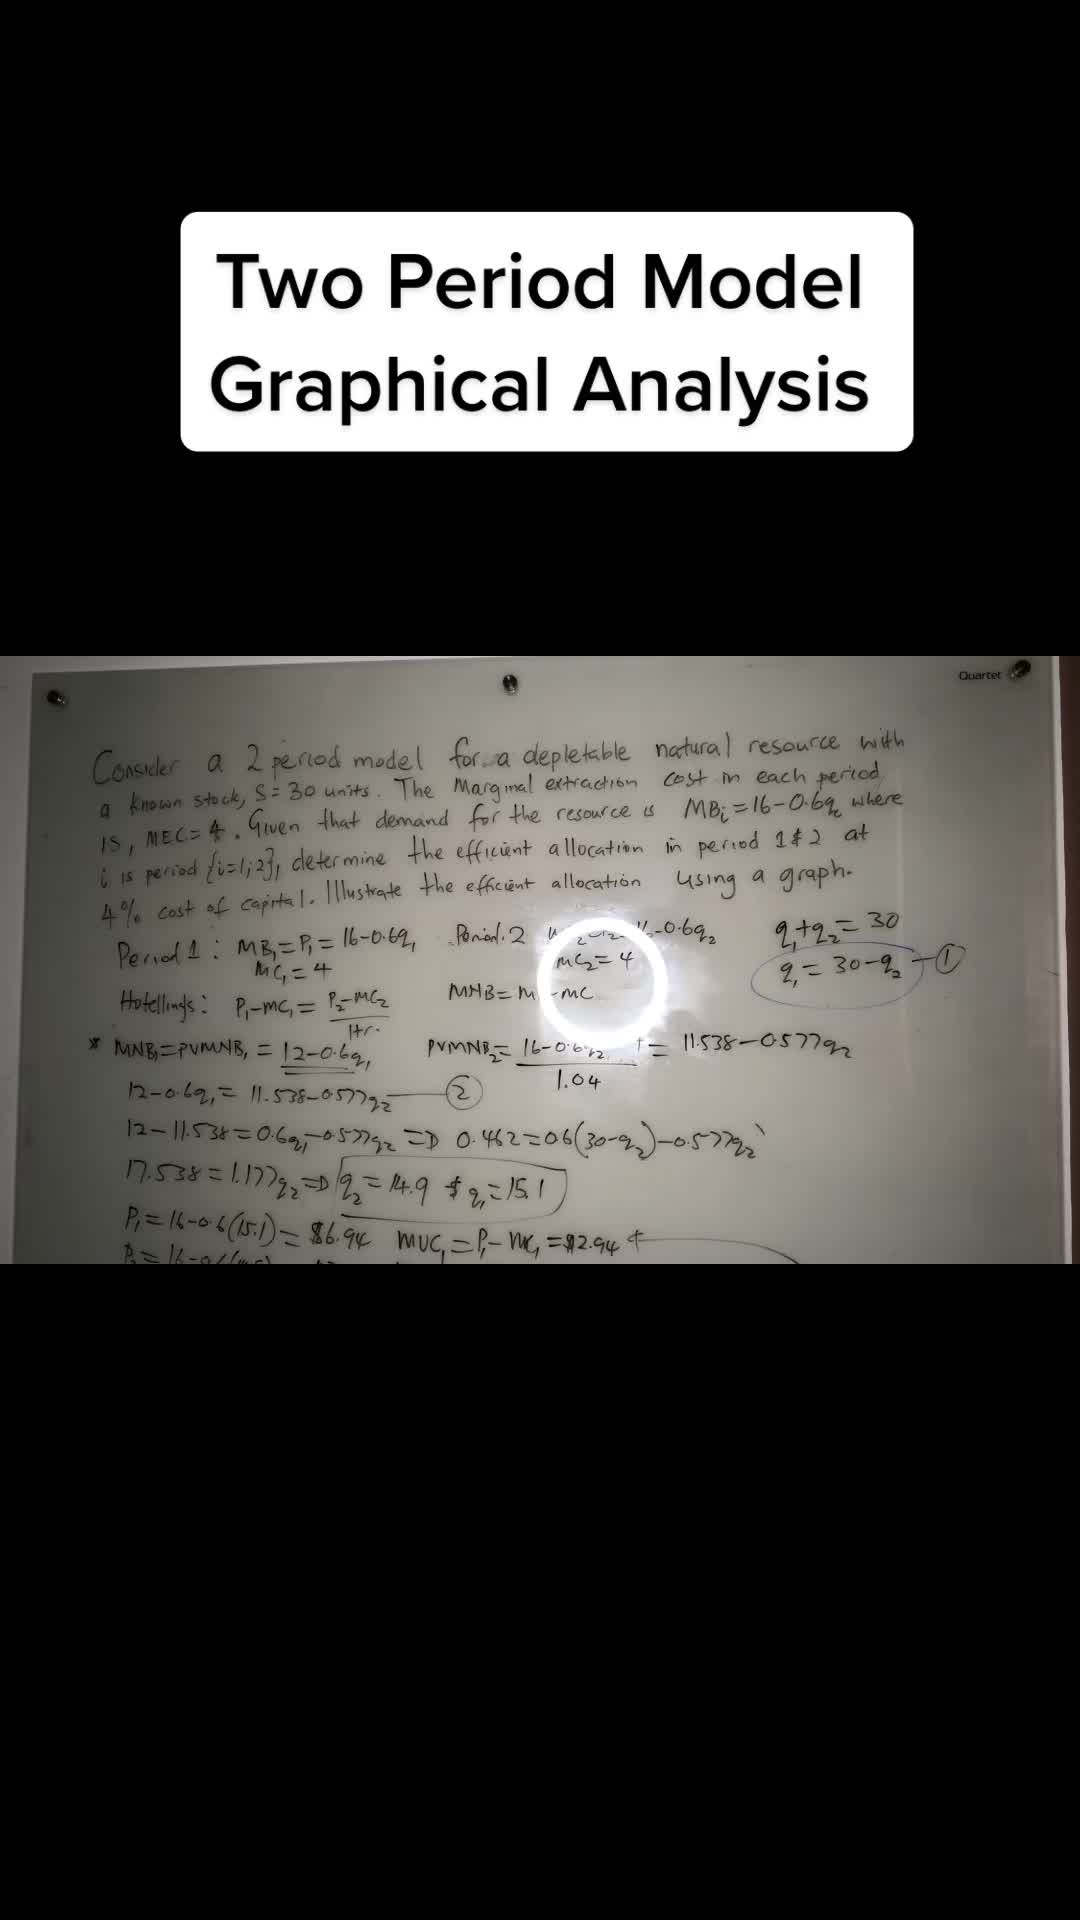 Two Period Model
Graphical Analysis
Quartet
Consider a 2 period model for a depletable natural resource with
a known stock, S = 30 units. The Marginal extraction cost in each period
is, MEC = 4. Given that demand for the resource is MBi = 16 - 0.6q where
i is period {i=1;2}, determine the efficient allocation in period 1 & 2 at
4% cost of capital. Illustrate the efficient allocation using a graph.
Period 1 : MB₁ = P₁ = 16 - 0.6q₁ Period 2 - 0.6q₂ q₁ + q₂ = 30
MC₁ = 4 MC₂ = 4 q₁ = 30 - q₂ — ①
Hotellings: P₁ - MC₁ = P₂ - MC₂ MNB = - MC
1+r.
* MNB₁ = PVMNB₁ = 12 - 0.6q₁ PVMNB₂ = 16 - 0.6q₂ = 11.538 - 0.577q₂
1.04
12 - 0.6q₁ = 11.538 - 0.577q₂ — ②
12 - 11.538 = 0.6q₁ - 0.577q₂ => 0.462 = 0.6(30 - q₂) - 0.577q₂
17.538 = 1.177q₂ => q₂ = 14.9 & q₁ = 15.1
P₁ = 16 - 0.6(15.1) = $6.94 MUC₁ = P₁ - MC₁ = $2.94